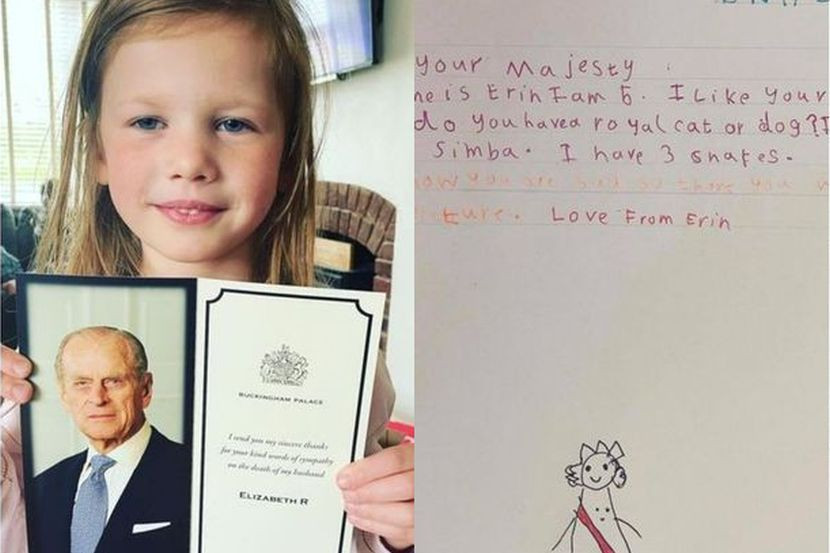 BUCKINGHAM PALACE
I send you my sincere thanks
for your kind words of sympathy
on the death of my husband
ELIZABETH R
your Majesty
me is Erin I am 6. I Like your
do you have a royal cat or dog? I
Simba. I have 3 snakes.
you are
you
Love From Erin